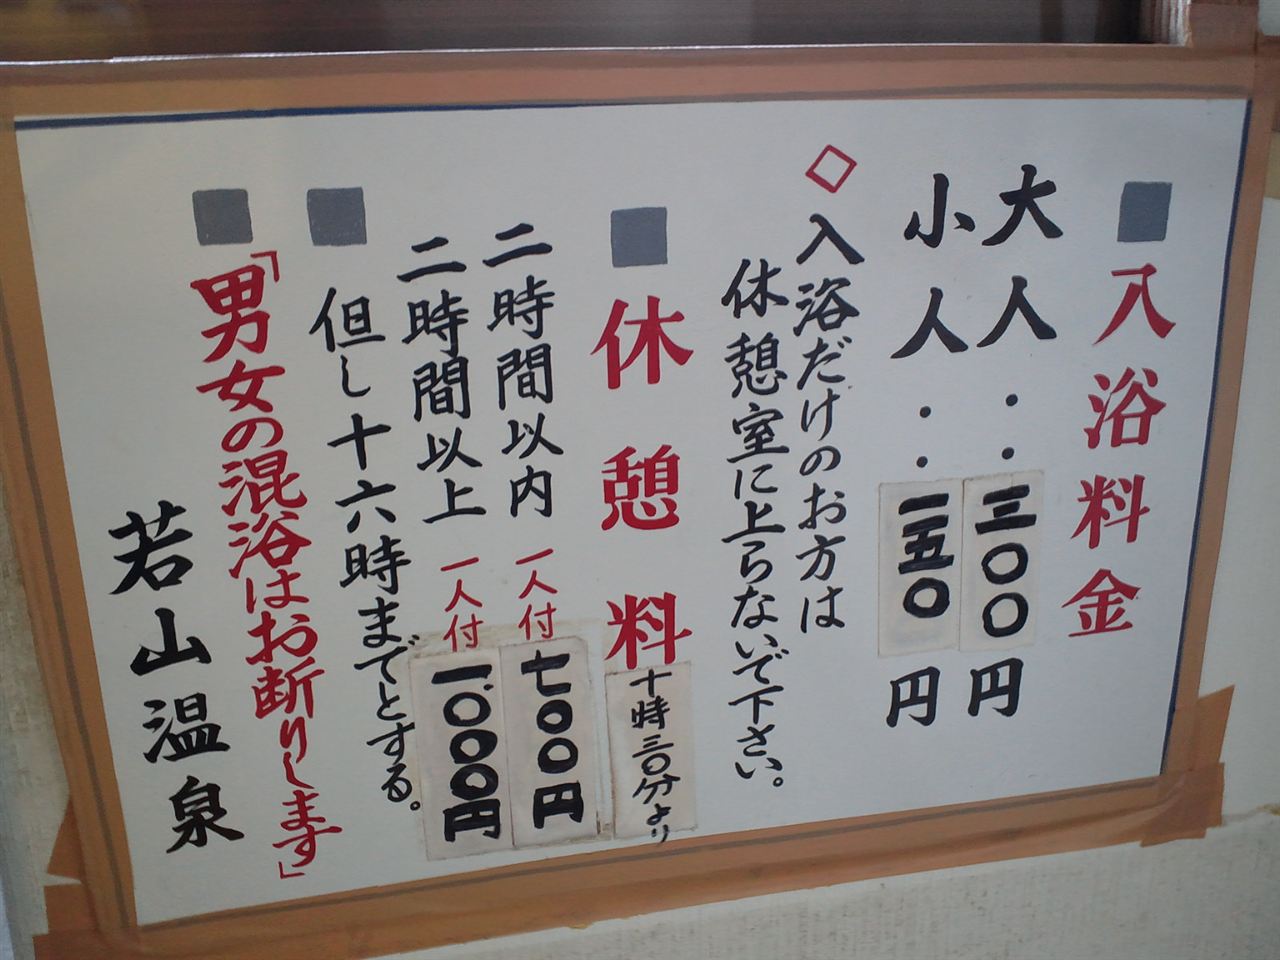 ■入浴料金
大人・・三〇〇円
小人・・一五〇円
◇入浴だけのお方は
休憩室に上らないで下さい。
■休憩料十時三〇分より
二時間以内一人付七〇〇円
二時間以上一人付一、〇〇〇円
■但し十六時までとする。
■「男女の混浴はお断りします」
若山温泉